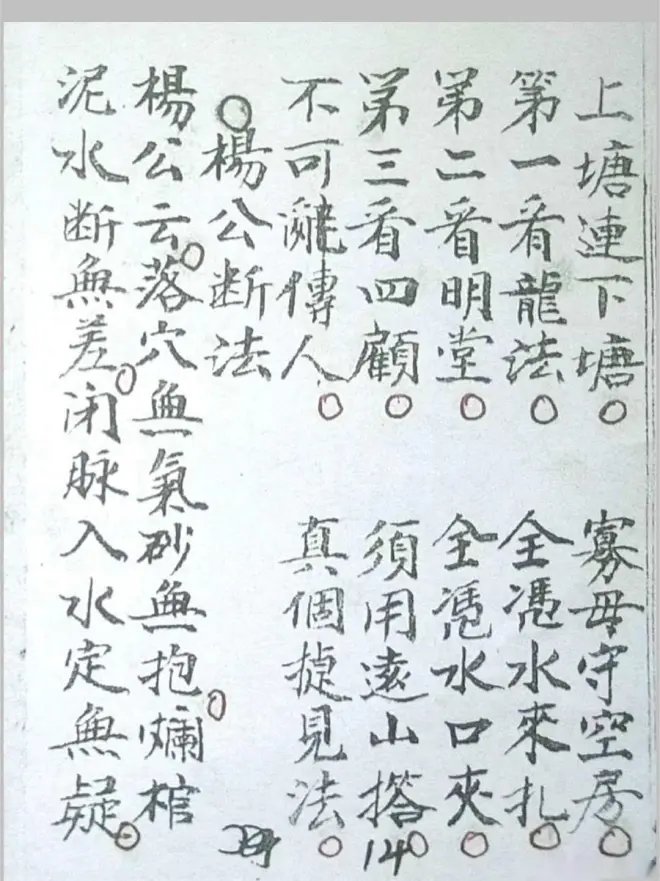 上塘連下塘○寡母守空房○
第一看龍法○全憑水來扎○
第二看明堂○全憑水口夾○
第三看四顧○須用遠山搭○
不可亂傳人○真個捷見法○
○楊公断法
楊公云○落穴無氣砂無抱○爛棺
泥水断無差○闭脉入水定無疑○
14